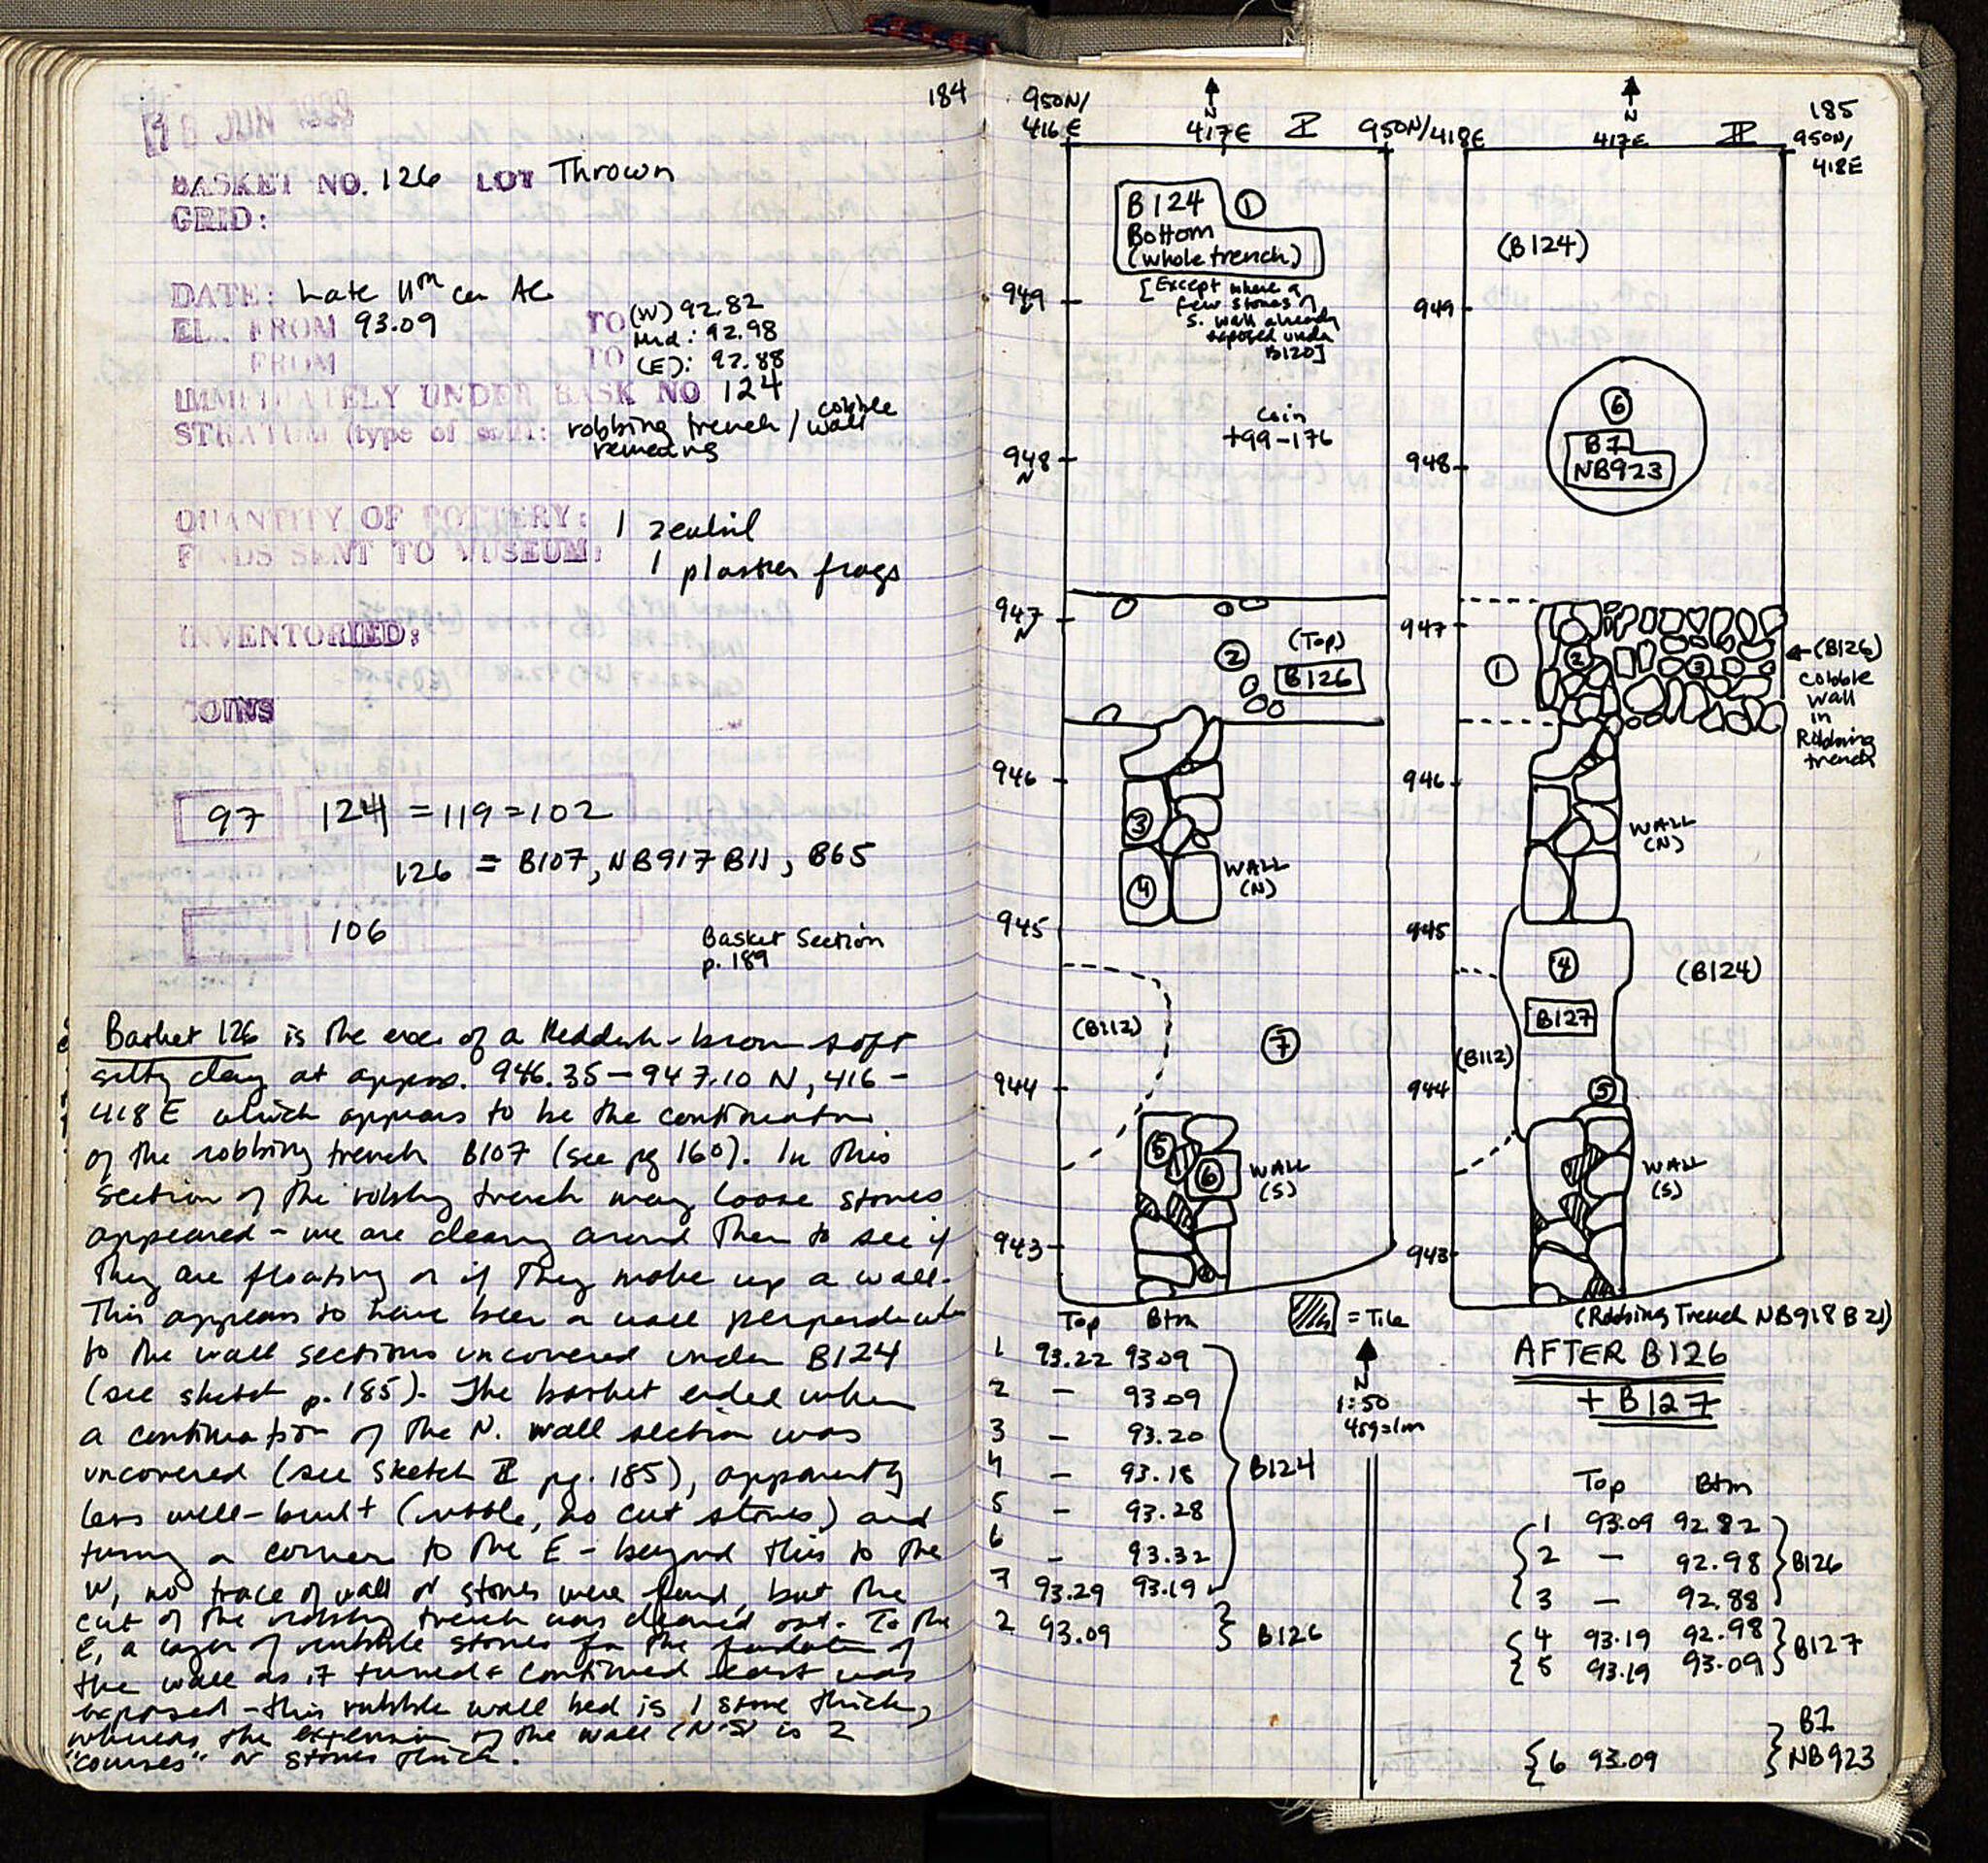 184
JUN
BASKET NO. 126 LOT Thrown
GRID:
DATE: Late 11th cen AC
EL. FROM 93.09 TO (W) 92.82
Mid: 92.98
FROM TO (E): 92.88
IMMEDIATELY UNDER BASK NO 124
STRATUM (type of soil): robbing trench / cobble wall
remains
QUANTITY OF POTTERY: 1 zembil
FINDS SENT TO MUSEUM: 1 plaster frags
INVENTORIED:
COINS
97 124 = 119 = 102
126 = B107, NB917 B11, B65
106
Basket Section
p. 189
Basket 126 is the exc. of a Reddish-brown soft
silty clay at approx. 946.35 - 947.10 N, 416 -
418 E which appears to be the continuation
of the robbing trench B107 (see pg 160). In this
section of the robbing trench many loose stones
appeared - we are clearing around them to see if
they are floating or if they make up a wall.
This appears to have been a wall perpendicular
to the wall sections uncovered under B124
(see sketch p. 185). The basket ended when
a continuation of the N. wall section was
uncovered (see sketch II pg. 185), apparently
less well-built (rubble, no cut stones) and
turning a corner to the E - beyond this to the
W, no trace of wall or stones were found, but the
cut of the robbing trench was cleaned out. To the
E, a layer of rubble stones for the foundation of
the wall as it turned & continued east was
exposed - this rubble wall bed is 1 stone thick,
whereas the extension of the wall (N-S) is 2
"courses" or stones thick.
185
950N/
416E
N
417E
I
950N/418E
B124 1
Bottom
(whole trench)
[Except where a
few stones of
S. wall already
exposed under
B120]
949
Coin
+99-176
948
N
947
N
2
(Top)
B126
946
3
4
WALL
(N)
945
(B112)
7
944
5
6
WALL
(S)
943
N
417E
II
950N/
418E
(B124)
949
6
B1
NB923
948
947
1
2
3
(B126)
cobble
wall
in
Robbing
trench
946
WALL
(N)
945
4
(B124)
B127
(B112)
944
5
WALL
(S)
943
Top Btm
1 93.22 93.09
2 - 93.09
3 - 93.20
4 - 93.18
5 - 93.28
6 - 93.32
7 93.29 93.19
B124
2 93.09 B126
= Tile
N
1:50
4sqs/m
(Robbing Trench NB918 B21)
AFTER B126
+ B127
Top Btm
1 93.09 92.82
2 - 92.98
3 - 92.88
B126
4 93.19 92.98
5 93.19 93.09
B127
6 93.09
B1
NB923